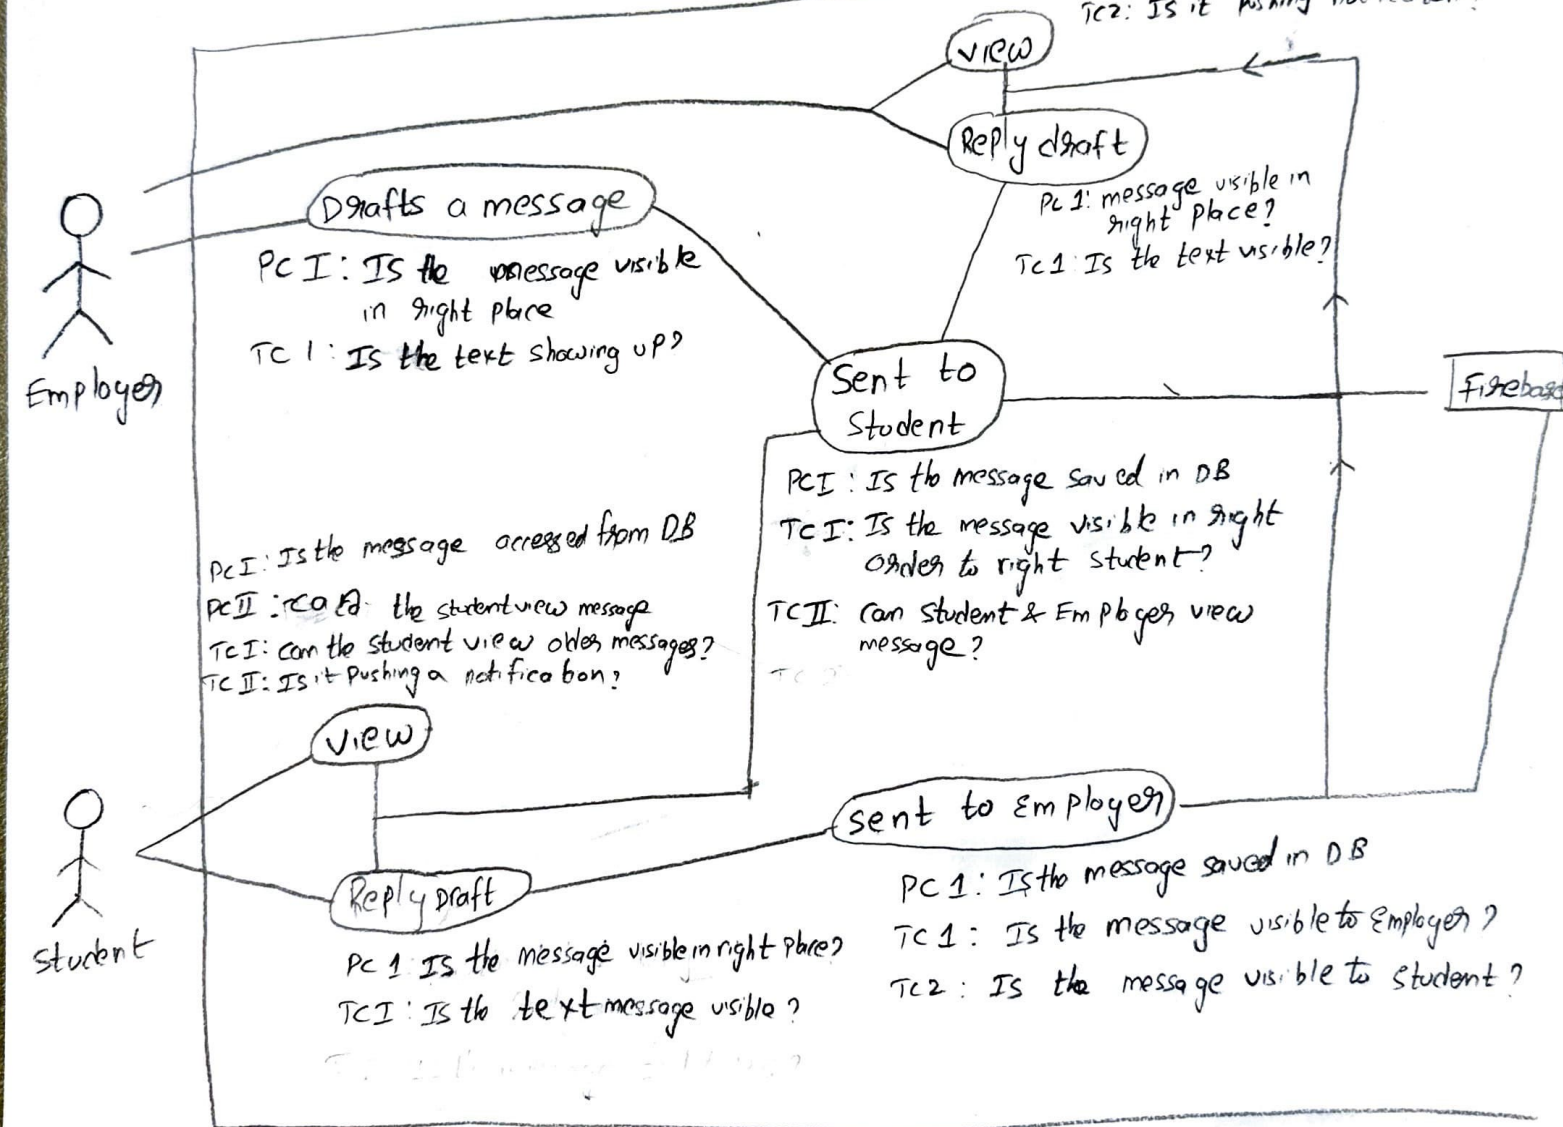 TC2: Is it pushing
view
Reply draft
PC 1: message visible in
right place?
TC1: Is the text visible?
Drafts a message
PC I: Is the message visible
in right place
TC 1: Is the text showing up?
Employer
Sent to
Student
Firebase
PCI: Is the message saved in DB
TCI: Is the message visible in right
order to right student?
TCII: can Student & Employer view
message?
PCI: Is the message accessed from DB
PCII: the student view message
TCI: can the student view older messages?
TCII: Is it pushing a notification?
view
Reply Draft
PC 1 Is the message visible in right place?
TCI: Is the text message visible?
Student
Sent to Employer
PC 1: Is the message saved in DB
TC 1: Is the message visible to Employer?
TC2: Is the message visible to student?